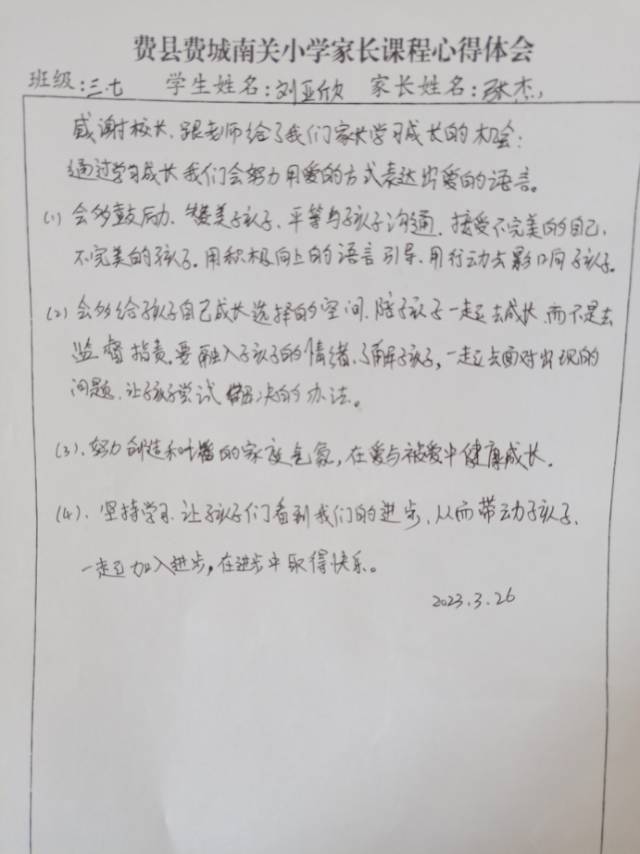 费县费城南关小学家长课程心得体会
班级:三.七 学生姓名:刘亚欣 家长姓名:张杰
感谢校长、跟老师给了我们家长学习成长的机会:
通过学习成长我们会努力用爱的方式表达出爱的语言。
(1)会多鼓励、赞美孩子、平等与孩子沟通、接受不完美的自己,
不完美的孩子。用积极向上的语言引导、用行动去影响孩子。
(2)会多给孩子自己成长选择的空间、陪孩子一起去成长、而不是去
监督指责、要融入孩子的情绪、了解孩子,一起去面对出现的
问题、让孩子尝试解决的办法。
(3).努力创造和谐的家庭气氛,在爱与被爱中健康成长。
(4)、坚持学习、让孩子们看到我们的进步、从而带动孩子、
一起加入进步,在进步中取得快乐。
2023.3.26